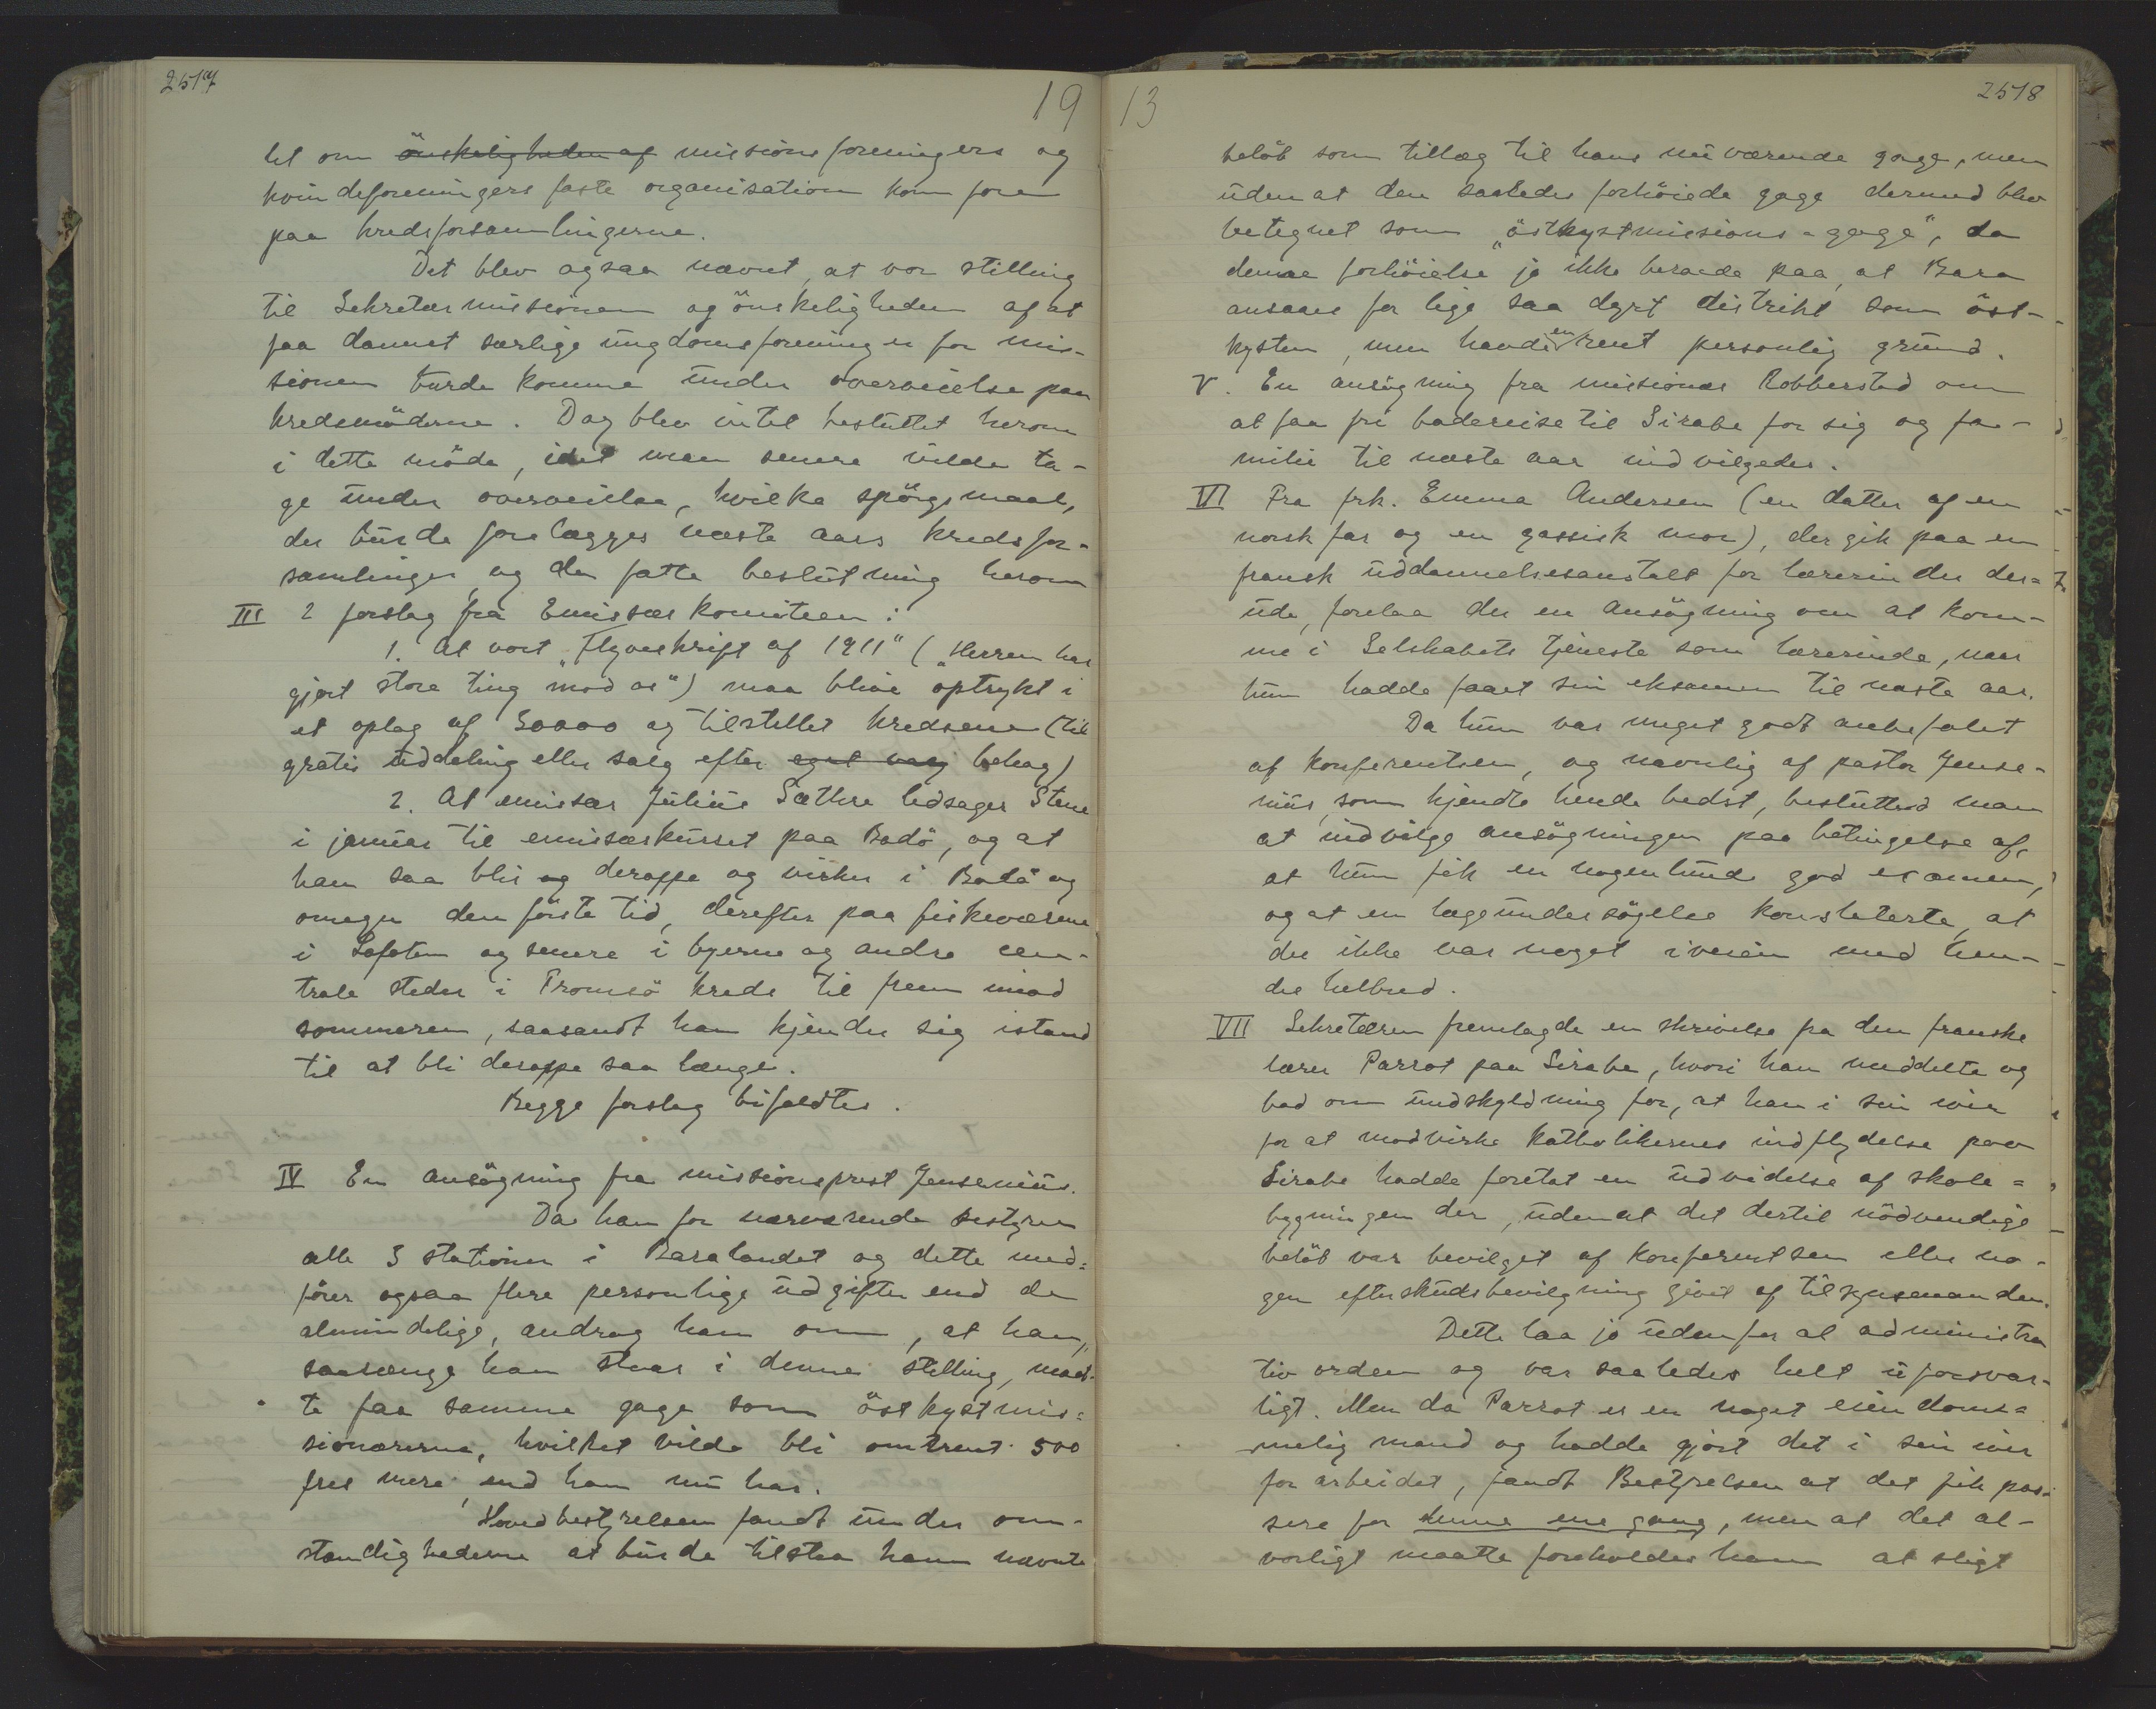 2517
19
let om önskeligheden af missionsforeningers og
kvindeforeningers faste organisation kom frem
paa kredsforsamlingerne.
Det blev ogsaa nævnt, at vor stilling
til Sekretærmissionen og önskeligheden af at
faa dannet særlige ungdomsforeninger for mis-
sionen burde komme under overveielse paa
kredsmöderne. Dog blev intet besluttet herom
i dette möde, idet man senere vilde ta-
ge under overveielse, hvilke spörgsmaal,
der burde forelægges næste aars kredsfor-
samlinger og da fatte beslutning herom
III 2 forslag fra Emissærkomiteen:
1. At vort "Flyveskrift af 1911" ("Herren har
gjort store ting mod os") maa blive optrykt i
et oplag af 30000 og tilstillet kredsene (til
gratis uddeling eller salg efter eget valg behag)
2. At emissær Julius Sæthre ledsager Stene
i januar til emissærkurset paa Bodö, og at
han saa blir og deroppe og virker i Bodö og
omegn den förste tid, derefter paa fiskeværene
i Lofoten og senere i byerne og andre cen-
trale steder i Tromsö kreds til frem imod
sommeren, saasandt han kjender sig istand
til at bli deroppe saa længe.
Begge forslag bifaldtes.
IV En ansögning fra missionsprest Jensenius.
Da han for nærværende bestyrer
alle 3 stationer i Baralandet og dette med-
förer ogsaa flere personlige udgifter end de
almindelige, androg han om, at han,
saalænge han staar i denne stilling, maat-
te faa samme gage som östkystmis-
sionærerne, hvilket vilde bli omtrent 500
frcs mere, end han nu har.
Hovedbestyrelsen fandt under om-
stændighederne at burde tilstaa ham nævnte
13
2518
belöb som tillæg til hans nuværende gage, men
uden at den saaledes forhöiede gage dermed blev
betegnet som "östkystmissions-gage", da
denne forhöielse jo ikke beroede paa, at Bara
ansaaes for lige saa dyrt distrikt som öst-
kysten, men havde en rent personlig grund.
V. En ansögning fra missionær Robberstad om
at faa fri badereise til Sirabe for sig og fa-
milie til næste aar indvilgedes.
VI Fra frk. Emma Andersen (en datter af en
norsk far og en gassisk mor), der gik paa en
fransk uddannelsesanstalt for lærerinder der-
ude, forelaa der en ansögning om at kom-
me i Selskabets tjeneste som lærerinde, naar
hun hadde faaet sin eksamen til næste aar.
Da hun var meget godt anbefalet
af konferentsen, og navnlig af pastor Jense-
nius, som kjendte hende bedst, besluttede man
at indvilge ansögningen paa betingelse af,
at hun fik en nogenlunde god examen,
og at en lægeundersögelse konstaterte, at
der ikke var noget iveien med hen-
des helbred.
VII Sekretæren fremlagde en skrivelse fra den franske
lærer Parrot paa Sirabe, hvori han meddelte og
bad om undskyldning for, at han i sin iver
for at modvirke katholikernes indflydelse paa
Sirabe hadde foretat en udvidelse af skole-
bygningen der, uden at det dertil nödvendige
belöb var bevilget af konferentsen eller no-
gen efterskudsbevilgning givet af tilsynsmanden.
Dette laa jo udenfor al administra
tiv orden og var saaledes helt uforsvar-
ligt. Men da Parrot er en noget eiendom-
melig mand og hadde gjort det i sin iver
for arbeidet, fandt Bestyrelsen at det fik pas-
sere for denne ene gang, men at det al-
vorligt maatte foreholdes ham at sligt